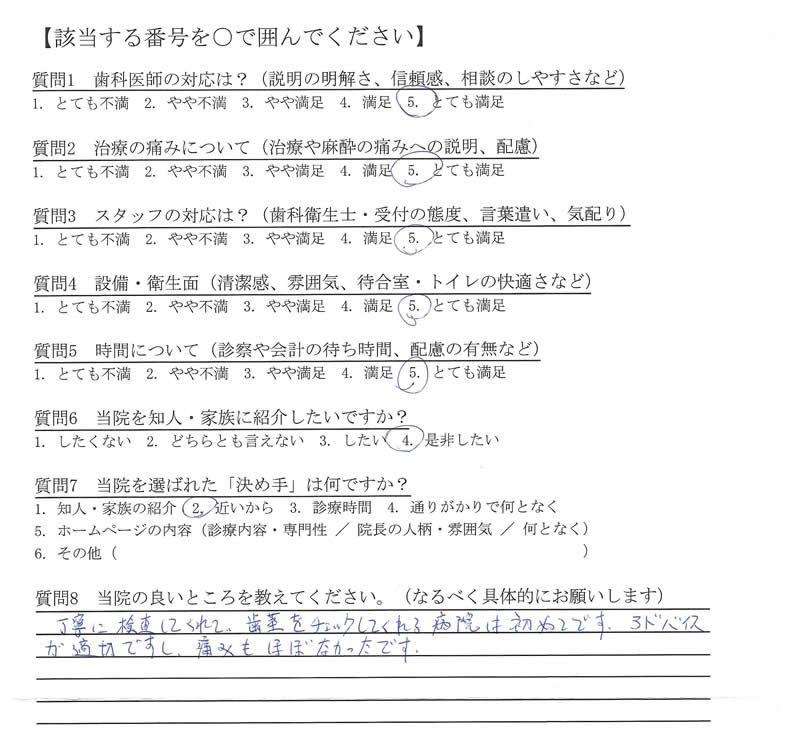 【該当する番号を○で囲んでください】
質問1 歯科医師の対応は？（説明の明解さ、信頼感、相談のしやすさなど）
1. とても不満 2. やや不満 3. やや満足 4. 満足 5. とても満足
質問2 治療の痛みについて（治療や麻酔の痛みへの説明、配慮）
1. とても不満 2. やや不満 3. やや満足 4. 満足 5. とても満足
質問3 スタッフの対応は？（歯科衛生士・受付の態度、言葉遣い、気配り）
1. とても不満 2. やや不満 3. やや満足 4. 満足 5. とても満足
質問4 設備・衛生面（清潔感、雰囲気、待合室・トイレの快適さなど）
1. とても不満 2. やや不満 3. やや満足 4. 満足 5. とても満足
質問5 時間について（診察や会計の待ち時間、配慮の有無など）
1. とても不満 2. やや不満 3. やや満足 4. 満足 5. とても満足
質問6 当院を知人・家族に紹介したいですか？
1. したくない 2. どちらとも言えない 3. したい 4. 是非したい
質問7 当院を選ばれた「決め手」は何ですか？
1. 知人・家族の紹介 2. 近いから 3. 診療時間 4. 通りがかりで何となく
5. ホームページの内容（診療内容・専門性 ／ 院長の人柄・雰囲気 ／ 何となく）
6. その他（ ）
質問8 当院の良いところを教えてください。（なるべく具体的にお願いします）
丁寧に検査してくれて、歯茎をチェックしてくれる病院は初めてです。アドバイス
が適切ですし、痛みもほぼなかったです.